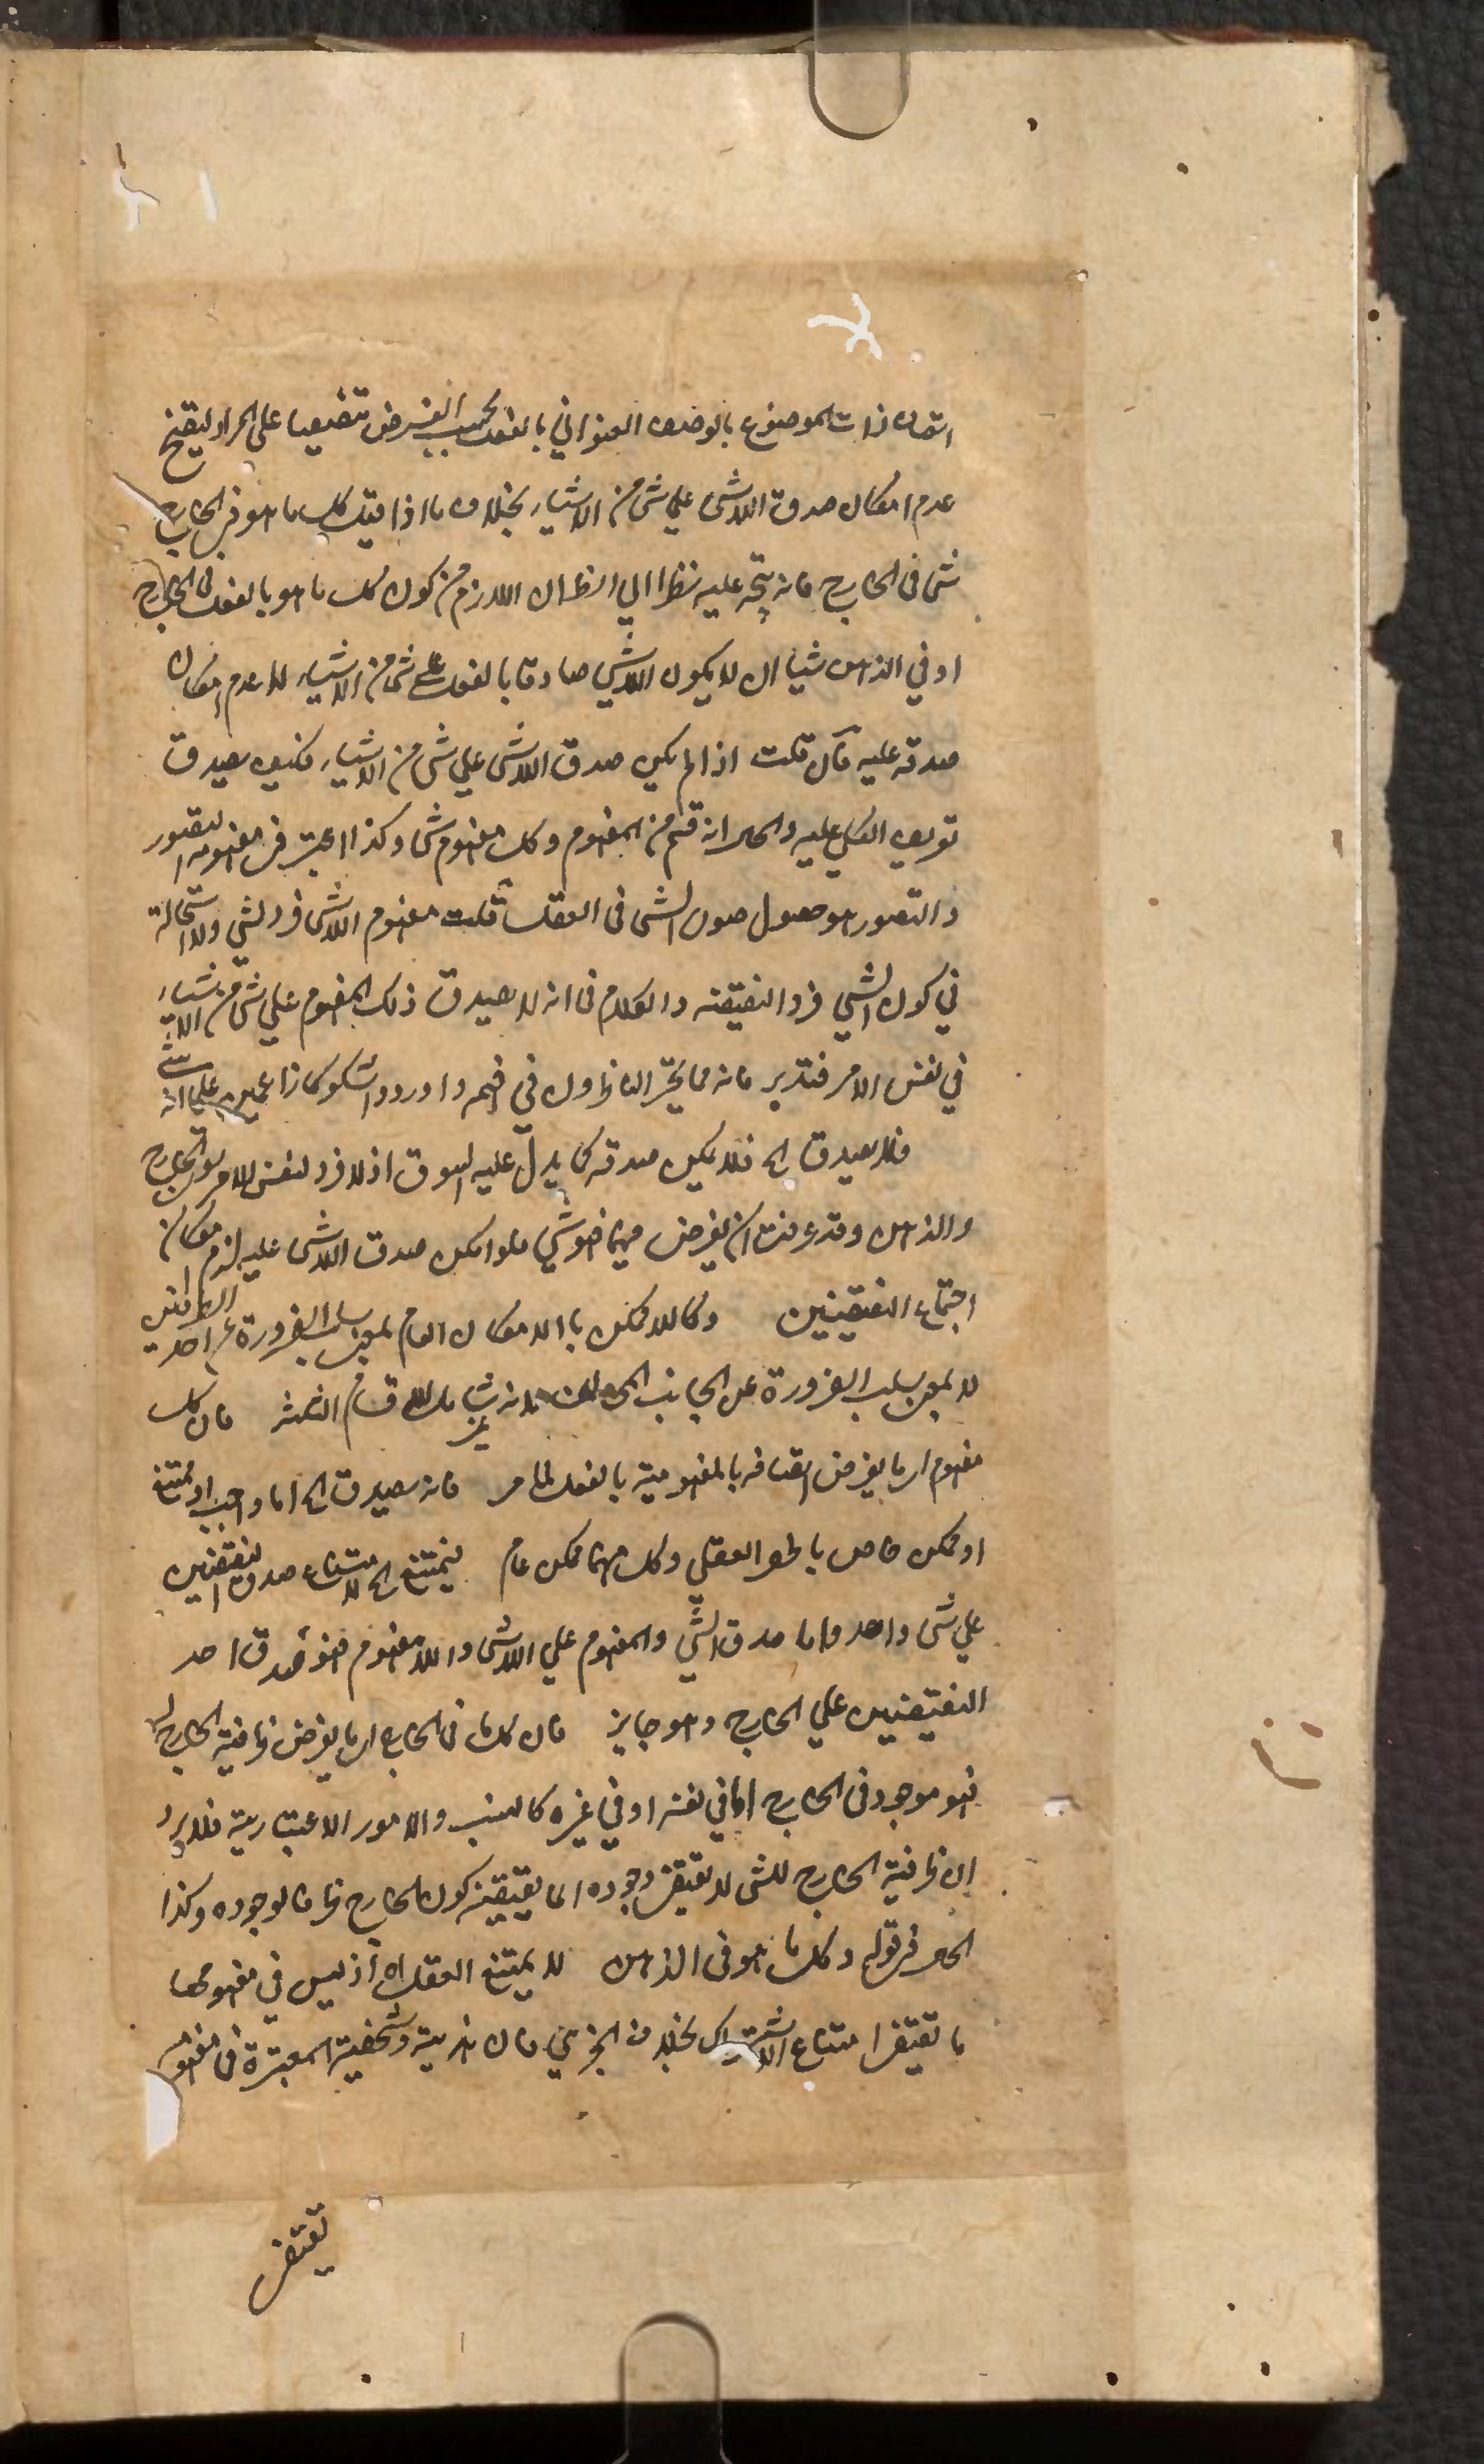 اتصاف ذات الموضوع بالوصف العنواني بالفعل بحسب الفرض تنصيصا على المراد ليتضح
عدم امكان صدق اللاشئ علي شئ من الاشياء بخلاف ما اذا قيل كل ما هو في الخارج
شئ في الخارج فانه يتجه عليه نظرا الي الظ ان اللازم من كون كل ما هو بالفعل في الخارج
او في الذهن شيئا ان لا يكون اللاشئ صادقا بالفعل على شئ من الاشياء لا عدم امكان
صدقه عليه فان قلت اذا لم يمكن صدق اللاشئ علي شئ من الاشياء فكيف يصدق
تعريف الكلي عليه والحال انه قسم من المفهوم وكل مفهوم شئ وكذا اعتبر في مفهومه التصور
والتصور هو حصول صورة الشئ في العقل قلت مفهوم اللاشئ فرد لشئ ولا استحالة
في كون الشئ فرد النقيضه والكلام في انه لا يصدق ذلك المفهوم علي شئ من الاشياء
في نفس الامر فتدبر فانه مما تحير الناظرون في فهمه واوردوا شكوكا زاعمين علي انه شئ
فلا يصدق الخ فلا يمكن صدقه كما يدل عليه السوق اذ لا فرد لنفس الامر سوى الخارج
والذهن وقد عرفت ان ما يفرض فيهما فهو شئ فلو امكن صدق اللاشئ عليه لزم امكان
اجتماع النقيضين وكاللاممكن بالامكان العام بمعنى سلب الضرورة عن احد الطرفين
لا بمعنى سلب الضرورة عن الجانب المخالف لانه غير شامل للاقسام الثلثة فان كل
مفهوم اى ما يفرض اتصافه بالمفهومية بالفعل لما مر فانه يصدق الخ اما واجب او ممتنع
او ممكن خاص بالحصر العقلي وكل منهما ممكن عام فيمتنع الخ لامتناع صدق النقيضين
علي شئ واحد واما صدق الشئ والمفهوم علي اللاشئ واللامفهوم فهو صدق احد
النقيضين علي الخارج وهو جايز فان كل ما في الخارج اى ما يفرض ظرفية الخارج له
فهو موجود في الخارج اما في نفسه او في غيره كالنسب والامور الاعتبارية فلا يرد
ان ظرفية الخارج للشئ لا يقتضى وجوده انما يقتضيه كون الخارج ظرفا لوجوده وكذا
الحال في قوله وكل ما هو في الذهن لا يمتنع العقل اه اذ ليس في مفهومها
ما تقتضى امتناع الاشتراك بخلاف الجزئي فان هذية وشخصية المعتبرة في مفهومه
تقتضى